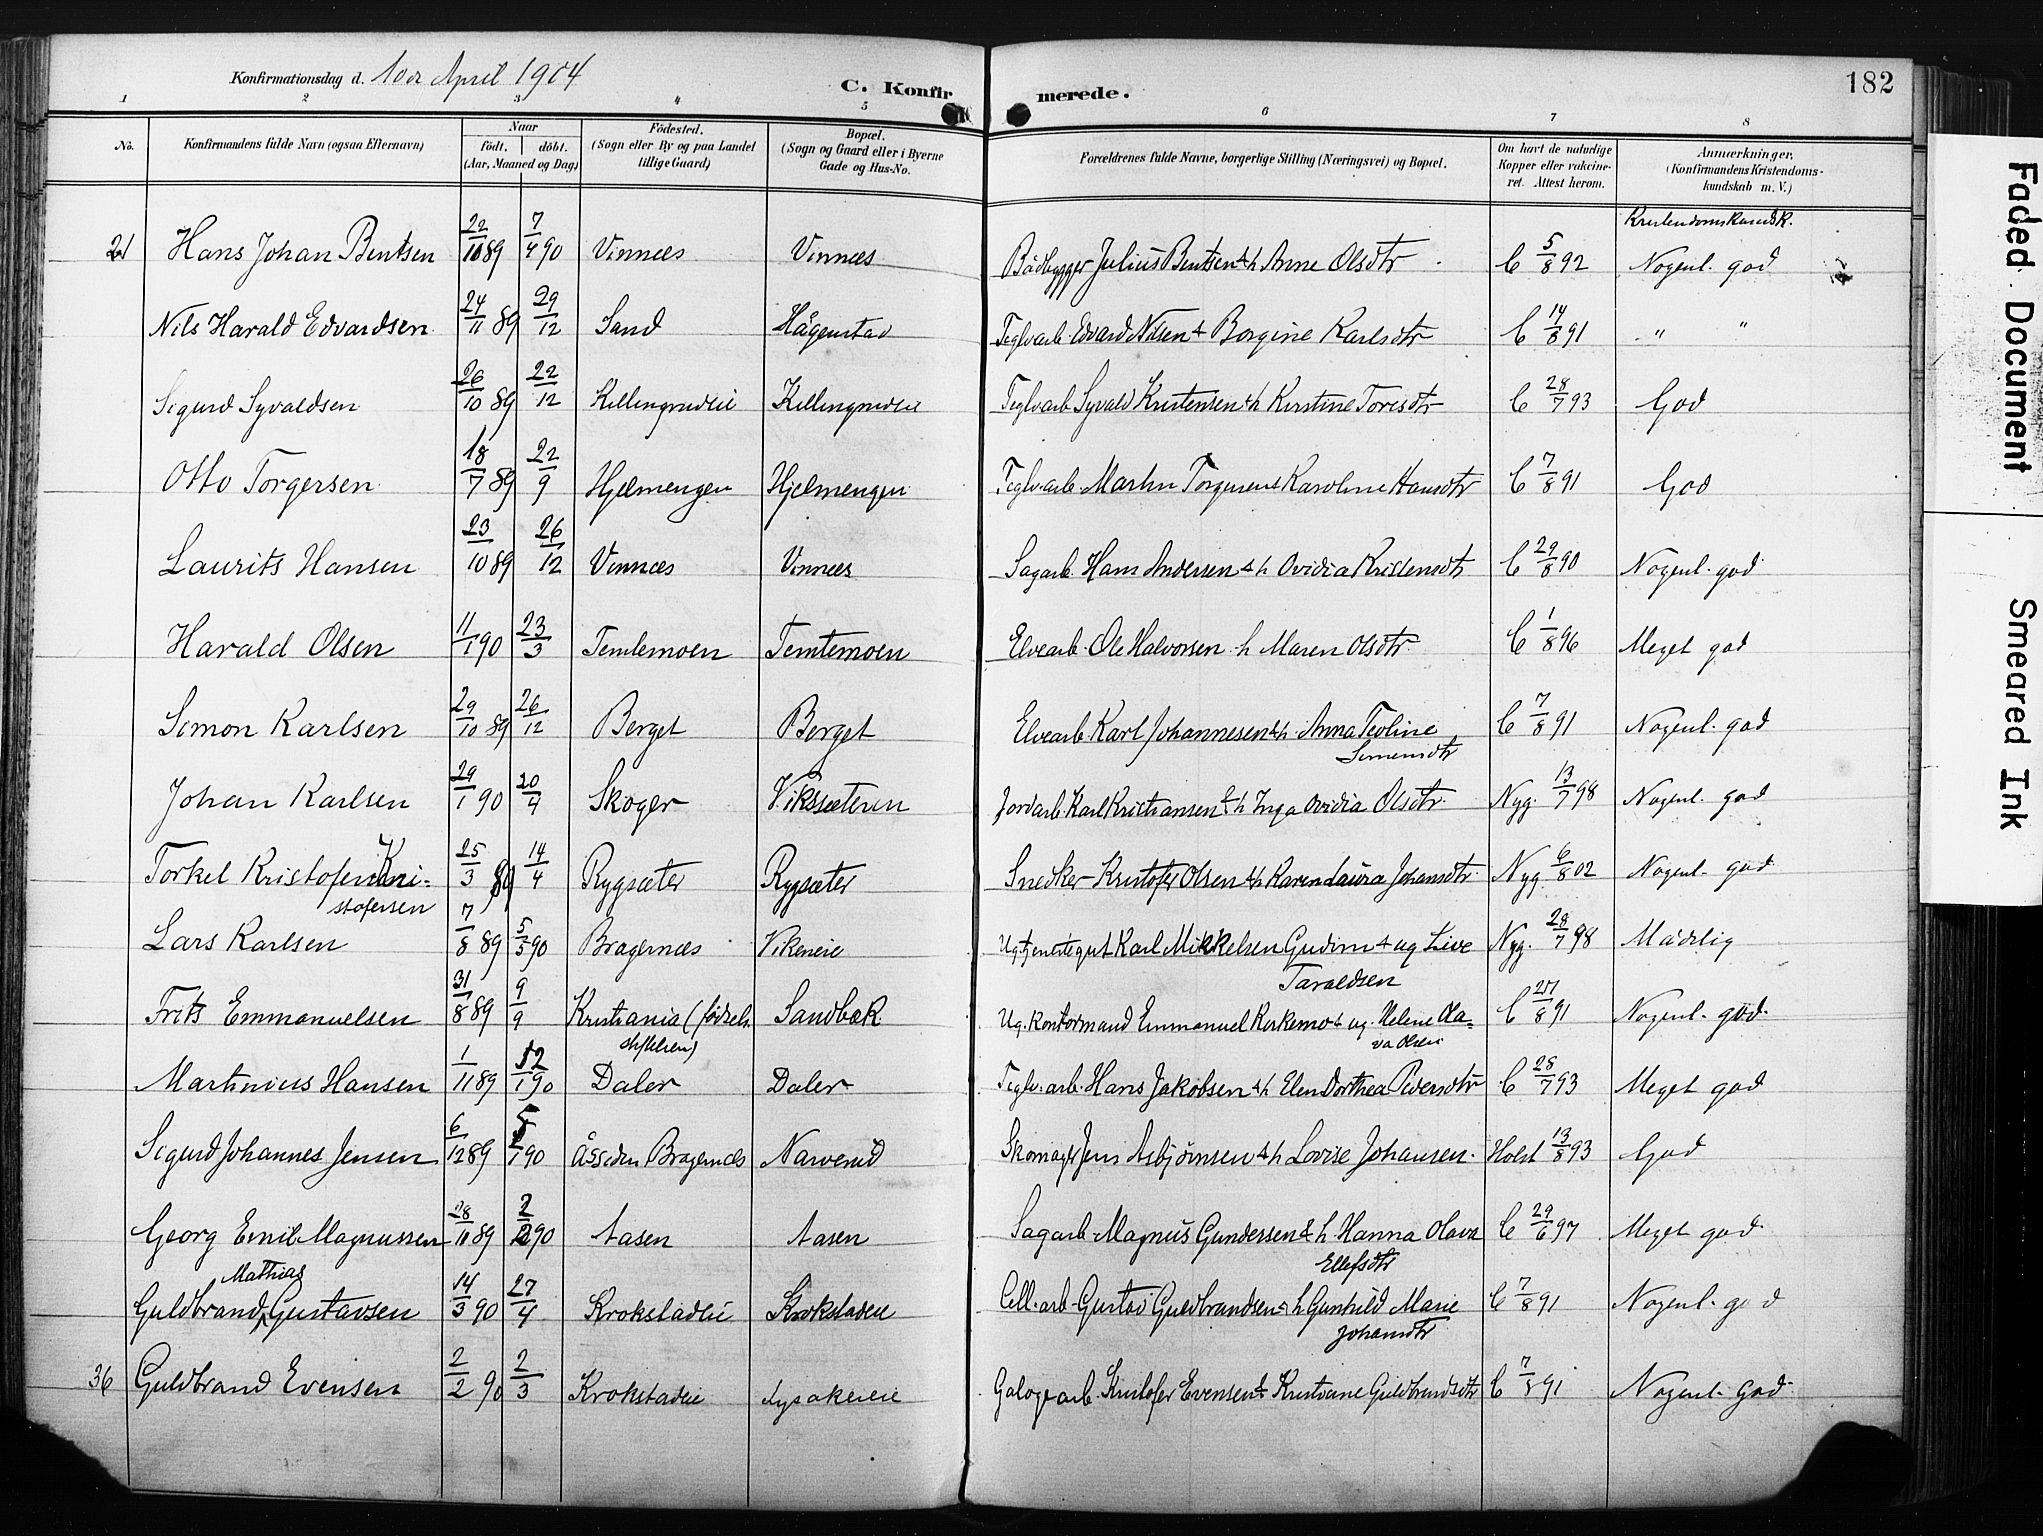 Konfirmationsdag d. 10de April 1904
C. Konfirmerede.
182
1 2 3 4 5 6 7 8
No.
Konfirmandens fulde Navn (ogsaa Efternavn)
Naar
født. døbt.
(Aar, Maaned og Dag)
Fødested.
(Sogn eller By og paa Landet
tillige Gaard)
Bopæl.
(Sogn og Gaard eller i Byerne
Gade og Hus-No.
Forældrenes fulde Navne, borgerlige Stilling (Næringsvei) og Bopæl.
Om havt de naturlige
Kopper eller vakcine-
ret. Attest herom.
Anmærkninger.
(Konfirmandens Kristendoms-
kundskab m. V.)
Kristendomskundsk.
21 Hans Johan Bentsen 22/10 89 7/4 90 Vinnæs Vinnæs Bådbygger Julius Bentsen & h Anne Olsdtr. C 5/8 92 Nogenl. god
Nils Harald Edvardsen 24/11 89 29/12 Sand Hågenstad Teglvarb. Edvard Nilsen & Borgine Karlsdtr C 14/8 91 " "
Sigurd Syvaldsen 26/10 89 22/12 Killingrudeie Killingrudeie Teglvarb Syvald Kristensen & h Kirstine Toresdtr C 28/7 93 God
Otto Torgersen 18/7 89 22/9 Hjelmengen Hjelmengen Teglv.arb. Martin Torgersen & Karoline Hansdtr C 7/8 91 God
Laurits Hansen 23/10 89 26/12 Vinnæs Vinnæs Sagarb. Hans Andersen & h Ovidia Kristensdtr C 29/8 90 Nogenl. god
Harald Olsen 11/1 90 23/3 Temtemoen Temtemoen Elvearb. Ole Halvorsen h Maren Olsdtr. C 1/8 96 Meget god
Simon Karlsen 29/10 89 26/12 Berget Berget Elvearb. Karl Johannesen & h. Anna Teoline C 7/8 91 Nogenl. god
Simensdtr
Johan Karlsen 29/1 90 20/4 Skoger Viksæteren Jordarb. Karl Kristiansen & h Inga Ovidia Olsdtr. Nyg. 13/7 98 Nogenl. god
Torkel Kristofer Kri= 25/3 89 14/4 Rygsæter Rygsæter Snedker Kristofer Olsen & h Karen Laura Johansdtr. Nyg. 6/8 02 Nogenl. god
stofersen
Lars Karlsen 7/8 89 5/5 90 Bragernæs Vikeneie Ug. tjenestegut Karl Mikkelsen Gudim & ug Live Nyg. 28/7 98 Mådelig
Taraldsen
Frits Emmanuelsen 31/8 89 9/9 Kristiania (fødsels Sandbæk Ug. Kontormand Emmanuel Kirkemo & ug. Helene Ola= C /8 91 Nogenl. god.
stiftelsen)
va Olsen
Martinius Hansen 1/11 89 12/1 90 Daler Daler Teglv.arb. Hans Jakobsen & h Elen Dorthea Pedersdtr C 28/7 93 Meget god
Sigurd Johannes Jensen 6/12 89 5/1 90 Åssiden Bragernæs Narverud Skomager Jens Asbjørnsen & h Lovise Johansen. Holst 13/8 93 God
Georg Emil Magnussen 28/11 89 2/2 90 Aasen Aasen Sagarb. Magnus Gundersen & h. Hanna Olava C 29/6 97 Meget god
Ellefsdtr
Mathias
Guldbrand Gustavsen 14/3 90 27/4 Krokstadeie Krokstadeie Cell.arb. Gustav Guldbrandsen & h Gunhild Marie C 7/8 91 Nogenl. god
Johansdtr
36 Guldbrand Evensen 2/2 90 2/3 Krokstadeie Lysakereie Galogearb. Kristofer Evensen & Kristiane Guldbrandsdtr C 7/8 91 Nogenl. God
Faded Document
Smeared Ink